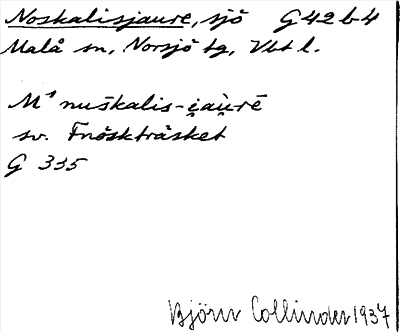 Noskalisjaure, sjö G42 b4
Malå sn, Norsjö tg, Vbt l.
M¹ nuškalis-i̯au̯rē
sv. Fnösktråsket
G 335
Björn Collinder 1937